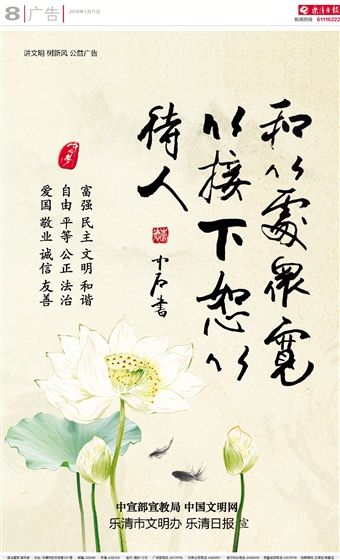 8 广告
2018年1月11日
乐清日报
新闻热线 61116222
讲文明 树新风 公益广告
和以處眾寬
以接下恕以
待人
中石書
富强 民主 文明 和谐
自由 平等 公正 法治
爱国 敬业 诚信 友善
中宣部宣教局 中国文明网
乐清市文明办 乐清日报 宣